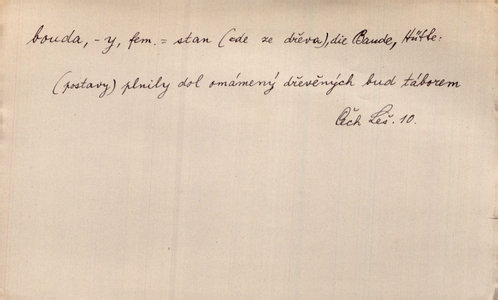 bouda, -y, fem. = stan (zde ze dřeva), die Baude, Hütte:
(postavy) plnily dol omámený dřevěných bud táborem
Čech Leš. 10.